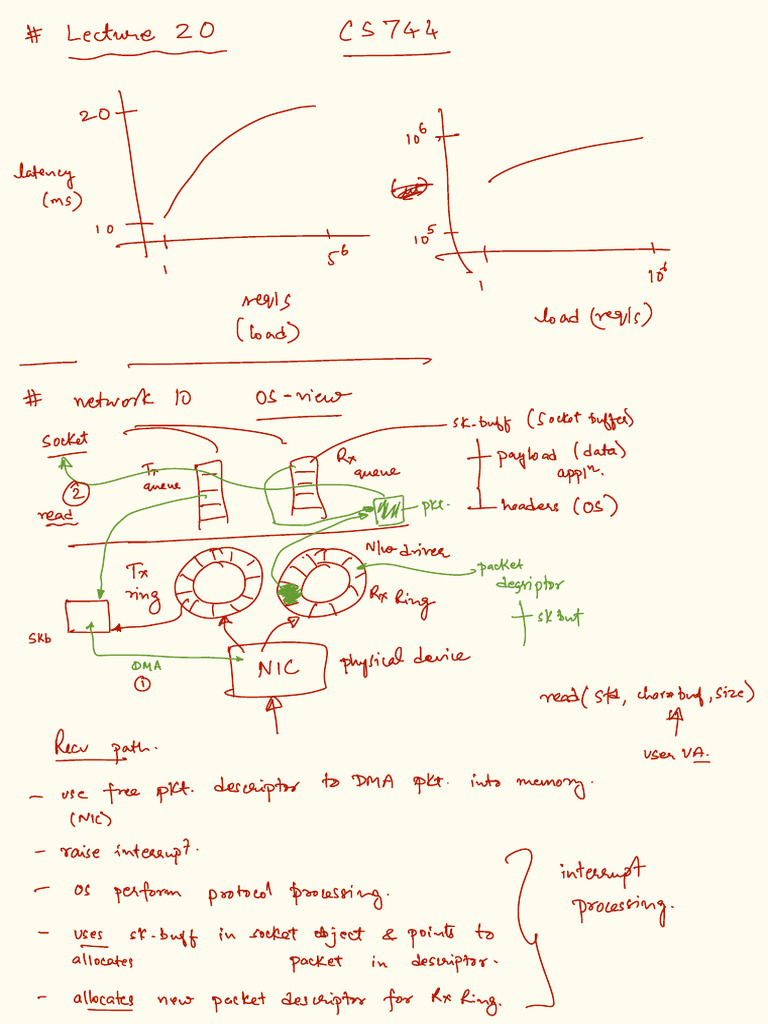 # Lecture 20 CS744
20
latency
(ms)
10
1
5^6
req/s
(load)
10^6
10^5
1
10^6
load (req/s)
# network IO OS-view
socket
Tx
queue
Rx
queue
sk-buff (socket buffer)
payload (data)
appl^n.
headers (OS)
②
read
pkt.
N/w driver
Tx
ring
Rx Ring
packet
descriptor
skbuf
skb
DMA
①
NIC
physical device
read(skt, char* buf, size)
user VA.
Recv path.
- use free pkt. descriptor to DMA pkt. into memory.
(NIC)
- raise interrupt.
- OS perform protocol processing.
- uses sk-buff in socket object & points to
allocates packet in descriptor.
- allocates new packet descriptor for Rx Ring.
interrupt
processing.